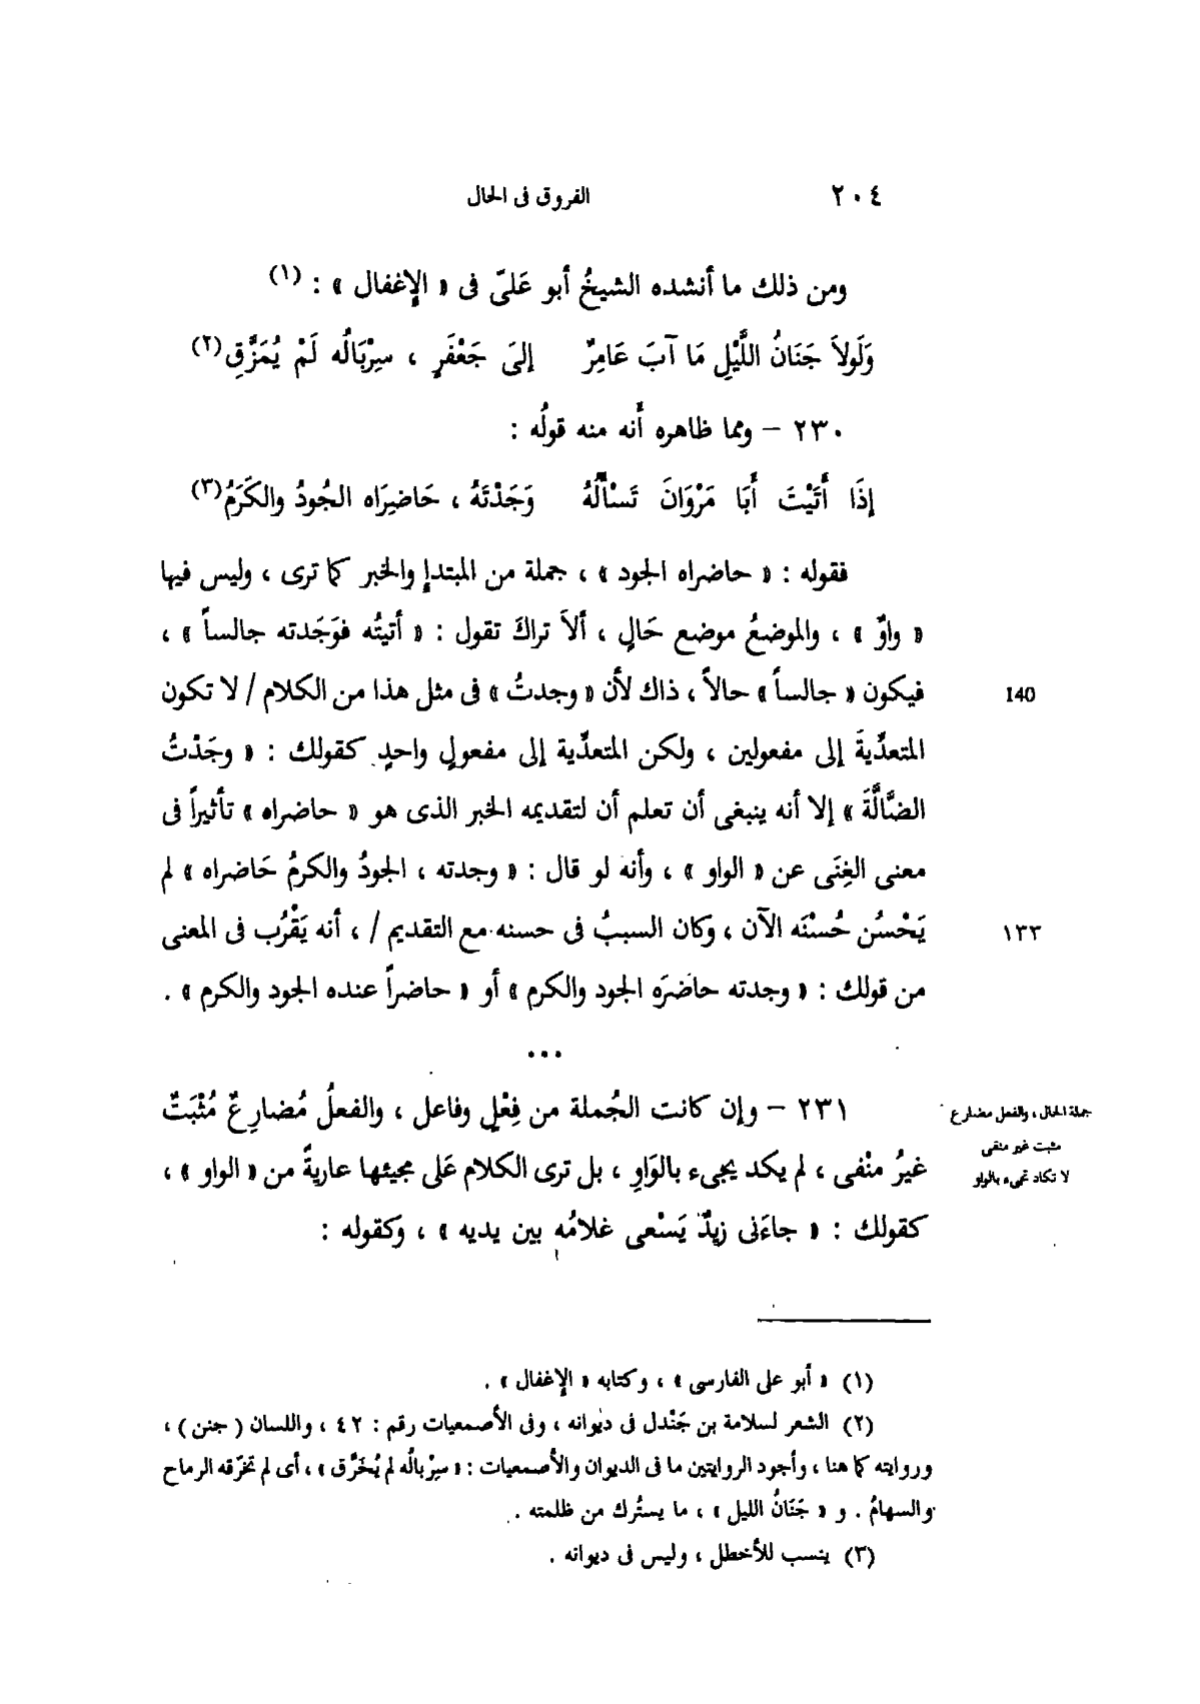 ٢٠٤ الفروق فى الحال
ومن ذلك ما أنشده الشيخُ أبو عَلىّ فى « الإغفال » : (١)
وَلَولاَ جَنَانُ اللَّيْلِ مَا آبَ عَامِرٌ إلىَ جَعْفَرٍ ، سِرْبَالُه لَمْ يُمَزَّقِ(٢)
٢٣٠ – ومما ظاهره أنه منه قولُه :
إِذَا أَتَيْتَ أَبَا مَرْوَانَ تَسْأَلُهُ وَجَدْتَهُ ، حَاضِرَاه الجُودُ والكَرَمُ(٣)
فقوله : « حاضراه الجود » ، جملة من المبتدإ والخبر كما ترى ، وليس فيها
« واوٌ » ، والموضعُ موضع حَالٍ ، ألاَ تراكَ تقول : « أتيتُه فوَجَدته جالساً » ،
فيكون « جالساً » حالاً ، ذاك لأن « وجدتُ » فى مثل هذا من الكلام / لا تكون
140
المتعدِّيةَ إلى مفعولين ، ولكن المتعدِّية إلى مفعولٍ واحدٍ كقولك : « وجَدْتُ
الضَّالَّةَ » إلا أنه ينبغى أن تعلم أن لتقديمه الخبر الذى هو « حاضراه » تأثيراً فى
معنى الغِنَى عن « الواو » ، وأنه لو قال : « وجدته ، الجودُ والكرمُ حَاضراه » لم
يَحْسُن حُسْنَه الآن ، وكان السببُ فى حسنه مع التقديم / ، أنه يَقْرُب فى المعنى
١٣٣
من قولك : « وجدته حاضرَه الجود والكرم » أو « حاضراً عنده الجود والكرم » .
...
٢٣١ – وإن كانت الجُملة من فِعْلٍ وفاعل ، والفعلُ مُضارِعٌ مُثْبَتٌ
غيرُ منْفى ، لم يكد يجىء بالوَاوِ ، بل ترى الكلام عَلى مجيئها عاريةً من « الواو » ،
كقولك : « جاءَنى زيدٌ يَسْعى غلامُه بين يديه » ، وكقوله :
جملة الحال ، والفعل مضارع
مثبت غير منفى
لا تكاد تجىء بالواو
(١) « أبو على الفارسى » ، وكتابه « الإغفال » .
(٢) الشعر لسلامة بن جَنْدل فى ديوانه ، وفى الأصمعيات رقم : ٤٢ ، واللسان ( جنن ) ،
وروايته كما هنا ، وأجود الروايتين ما فى الديوان والأصمعيات : « سِرْبالُه لم يُخَرَّق » ، أى لم تخرّقه الرماح
والسهامُ . و « جَنَانُ الليل » ، ما يسترُك من ظلمته .
(٣) ينسب للأخطل ، وليس فى ديوانه .